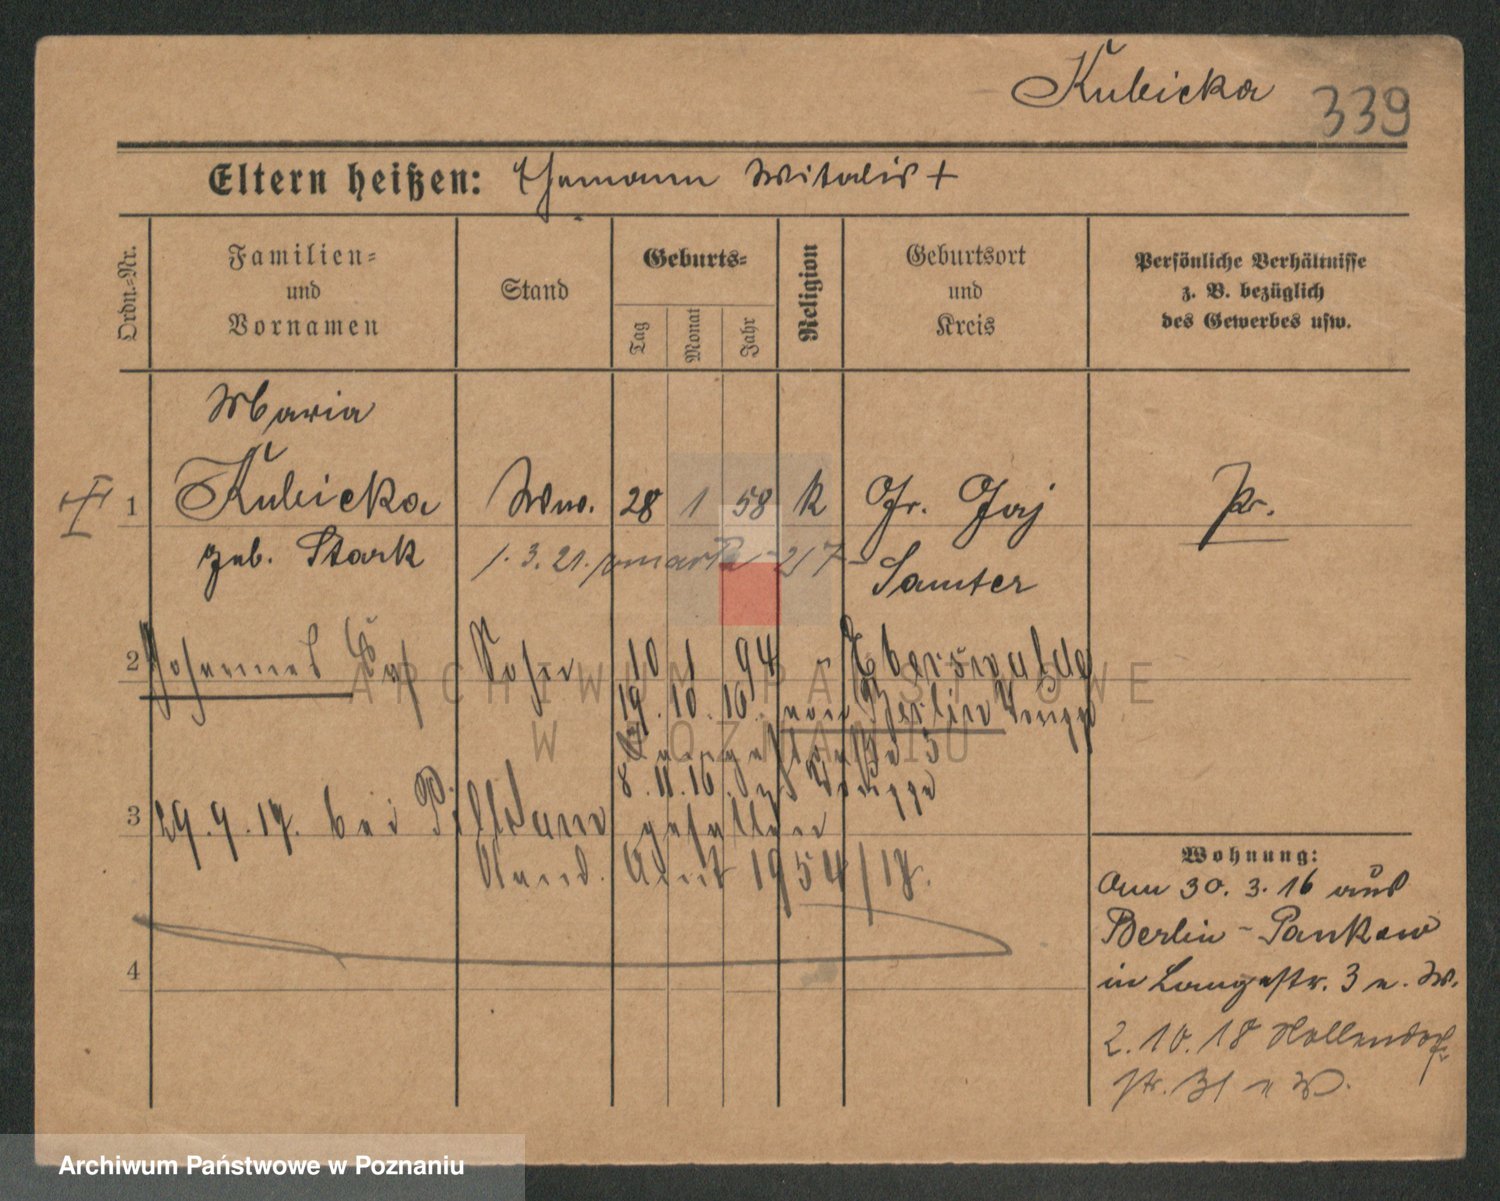 Kubicka 339
Eltern heißen: Ehemann Witalis +
Ordn.-Nr.
Familien-
und
Vornamen
Stand
Geburts-
Tag
Monat
Jahr
Religion
Geburtsort
und
Kreis
Persönliche Verhältnisse
z. B. bezüglich
des Gewerbes usw.
Maria
1 Kubicka Ww. 28 1 58 k Gr. Gaj Pr.
geb. Stark 1. 3. 21. Samter
2 Johannes Sohn 10 1 94 Eberswalde
19. 10. 16. von Berlin
Langestraße 3
8. 11. 16.
3 29. 9. 17. bei gefallen
Stand. Amt 1954/17.
4
Wohnung:
Am 30. 3. 16 aus
Berlin - Pankow
in Langestr. 3 e. W.
2. 10. 18
str. 31 e W.
ARCHIWUM PAŃSTWOWE
W POZNANIU
Archiwum Państwowe w Poznaniu